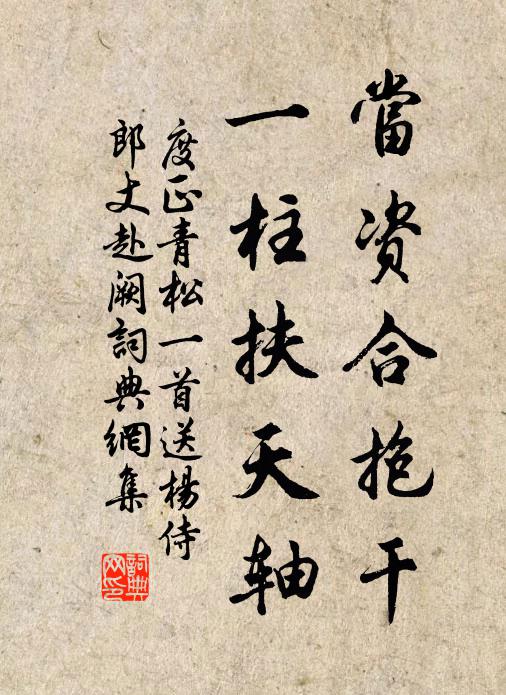 當資合抱干
一柱扶天轴
度正青松一首送楊侍
郎丈赴阙詞典網集
詞典
网印